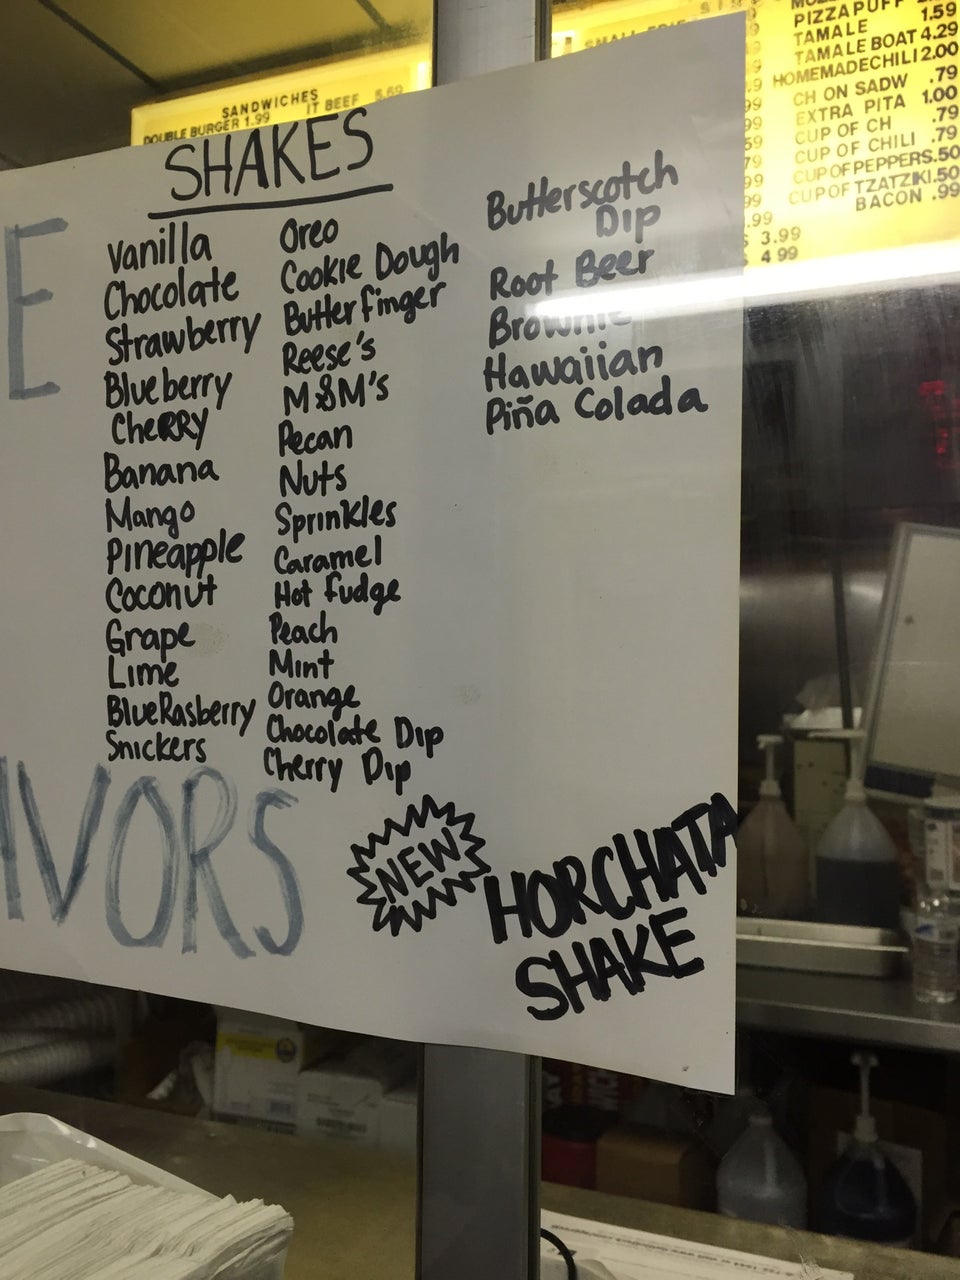 SANDWICHES
IT BEEF 5.69
DOUBLE BURGER 1.99
PIZZA PUFF
TAMALE 1.59
TAMALE BOAT 4.29
HOMEMADECHILI 2.00
CH ON SADW .79
EXTRA PITA 1.00
CUP OF CH .79
CUP OF CHILI .79
CUP OF PEPPERS .50
CUP OF TZATZIKI .50
BACON .99
3.99
4 99
SHAKES
Vanilla
Chocolate
Strawberry
Blueberry
Cherry
Banana
Mango
Pineapple
Coconut
Grape
Lime
BlueRasberry
Snickers
Oreo
Cookie Dough
Butterfinger
Reese's
M&M's
Pecan
Nuts
Sprinkles
Caramel
Hot Fudge
Peach
Mint
Orange
Chocolate Dip
Cherry Dip
Butterscotch
Dip
Root Beer
Brownie
Hawaiian
Piña Colada
E
AVORS
NEW
HORCHATA
SHAKE